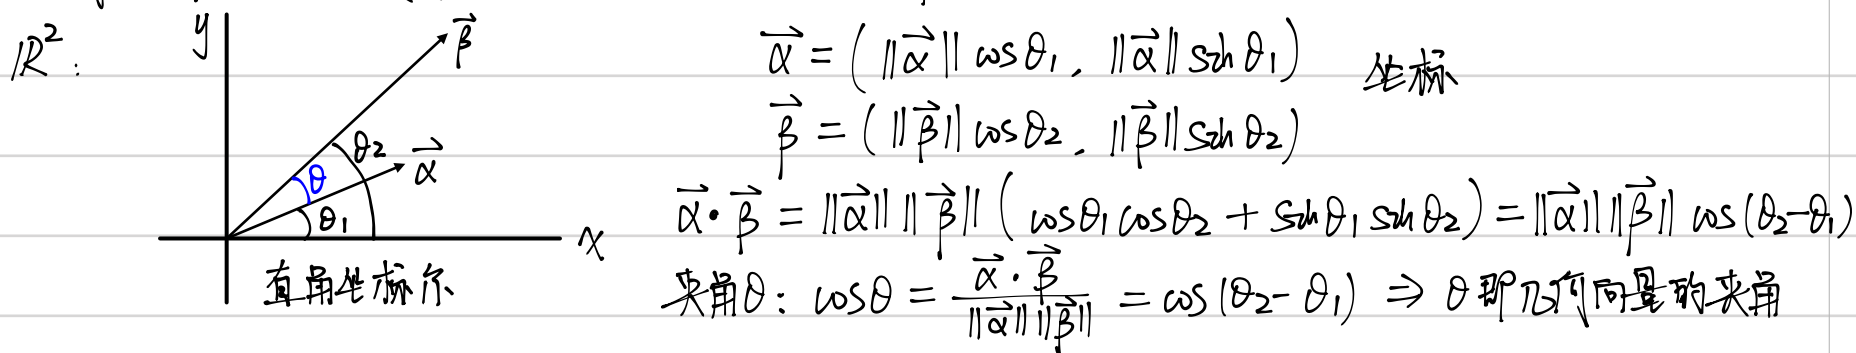 ℝ²:
y
β⃗
θ₂
α⃗
θ
θ₁
x
直角坐标系
α⃗ = (‖α⃗‖ cosθ₁, ‖α⃗‖ sinθ₁) 坐标
β⃗ = (‖β⃗‖ cosθ₂, ‖β⃗‖ sinθ₂)
α⃗·β⃗ = ‖α⃗‖ ‖β⃗‖ (cosθ₁cosθ₂ + sinθ₁sinθ₂) = ‖α⃗‖‖β⃗‖ cos(θ₂-θ₁)
夹角θ: cosθ = α⃗·β⃗ / ‖α⃗‖‖β⃗‖ = cos(θ₂-θ₁) ⇒ θ即几何向量的夹角